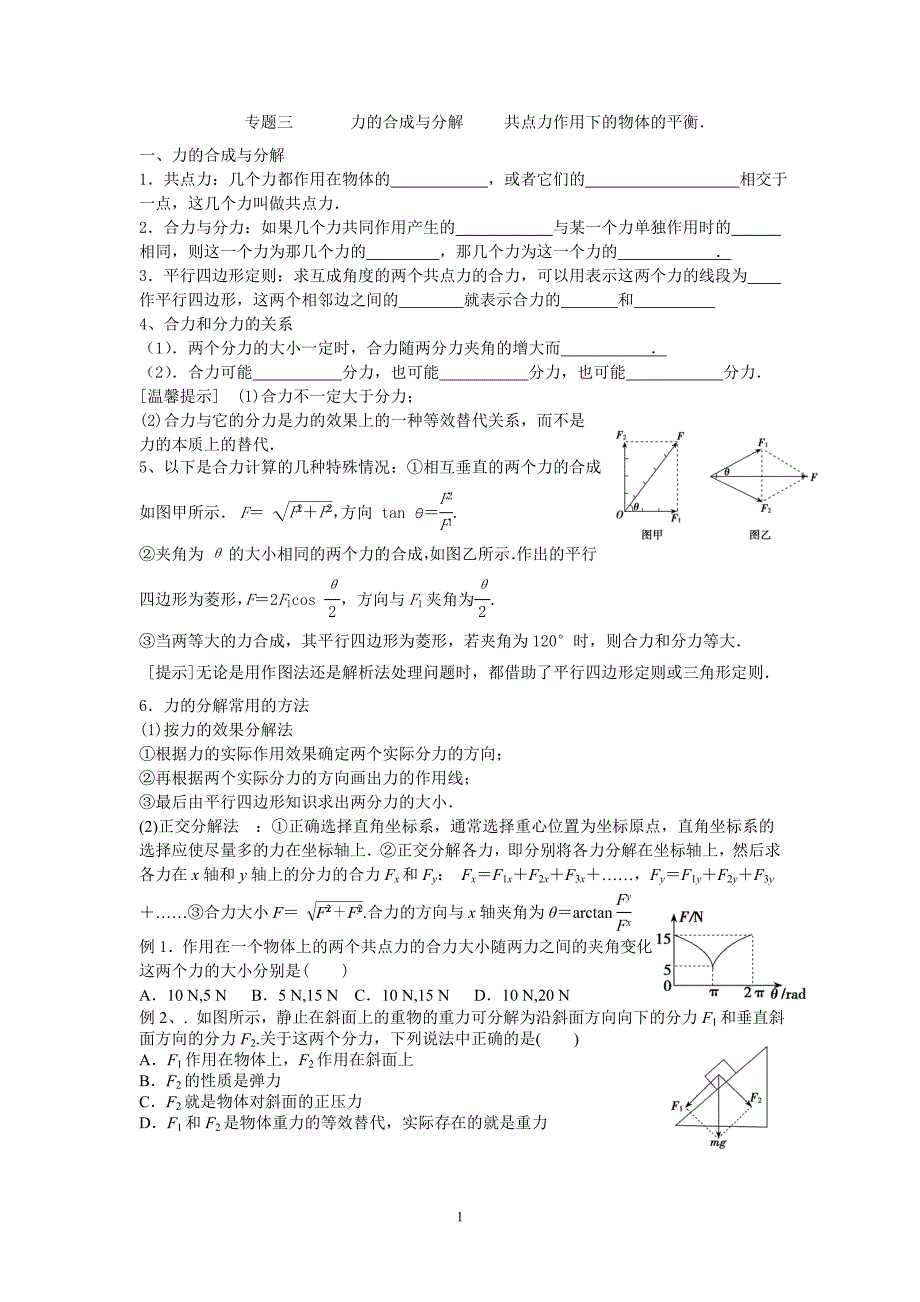 专题三 力的合成与分解 共点力作用下的物体的平衡.
一、力的合成与分解
1．共点力：几个力都作用在物体的____________，或者它们的___________________相交于
一点，这几个力叫做共点力．
2．合力与分力：如果几个力共同作用产生的____________与某一个力单独作用时的______
相同，则这一个力为那几个力的_________，那几个力为这一个力的____________．
3．平行四边形定则：求互成角度的两个共点力的合力，可以用表示这两个力的线段为____
作平行四边形，这两个相邻边之间的________就表示合力的_______和__________
4、合力和分力的关系
（1）．两个分力的大小一定时，合力随两分力夹角的增大而___________．
（2）．合力可能___________分力，也可能___________分力，也可能____________分力．
[温馨提示] (1)合力不一定大于分力；
(2)合力与它的分力是力的效果上的一种等效替代关系，而不是
力的本质上的替代．
5、以下是合力计算的几种特殊情况：①相互垂直的两个力的合成
如图甲所示． F＝ √F²1＋F²2，方向 tan θ＝F2/F1.
②夹角为 θ 的大小相同的两个力的合成，如图乙所示．作出的平行
四边形为菱形，F＝2F1cos θ/2，方向与 F1 夹角为θ/2.
F2 F θ O F1 图甲
F1 θ F F2 图乙
③当两等大的力合成，其平行四边形为菱形，若夹角为120°时，则合力和分力等大．
[提示]无论是用作图法还是解析法处理问题时，都借助了平行四边形定则或三角形定则．
6．力的分解常用的方法
(1)按力的效果分解法
①根据力的实际作用效果确定两个实际分力的方向；
②再根据两个实际分力的方向画出力的作用线；
③最后由平行四边形知识求出两分力的大小．
(2)正交分解法 ：①正确选择直角坐标系，通常选择重心位置为坐标原点，直角坐标系的
选择应使尽量多的力在坐标轴上．②正交分解各力，即分别将各力分解在坐标轴上，然后求
各力在 x 轴和 y 轴上的分力的合力 Fx 和 Fy： Fx＝F1x＋F2x＋F3x＋……，Fy＝F1y＋F2y＋F3y
＋……③合力大小 F＝ √F²x＋F²y.合力的方向与 x 轴夹角为 θ＝arctan Fy/Fx
例 1．作用在一个物体上的两个共点力的合力大小随两力之间的夹角变化
这两个力的大小分别是( )
A．10 N,5 N B．5 N,15 N C．10 N,15 N D．10 N,20 N
F/N 15 5 0 π 2π θ/rad
例 2、. 如图所示，静止在斜面上的重物的重力可分解为沿斜面方向向下的分力 F1 和垂直斜
面方向的分力 F2.关于这两个分力，下列说法中正确的是( )
A．F1 作用在物体上，F2 作用在斜面上
B．F2 的性质是弹力
C．F2 就是物体对斜面的正压力
D．F1 和 F2 是物体重力的等效替代，实际存在的就是重力
F1 F2 mg
1